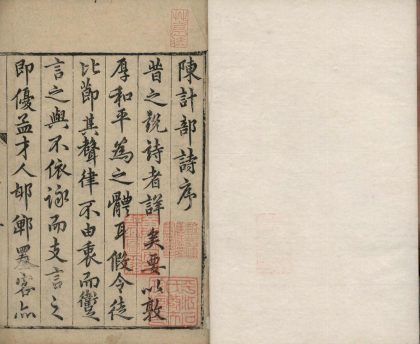 陳計部詩序
昔之說詩者詳矣要以敦
厚和平為之體耳假令徒
比節其聲律不由衷而衒
言之與不依詠而支言之
即優孟才人邯鄲置客亦